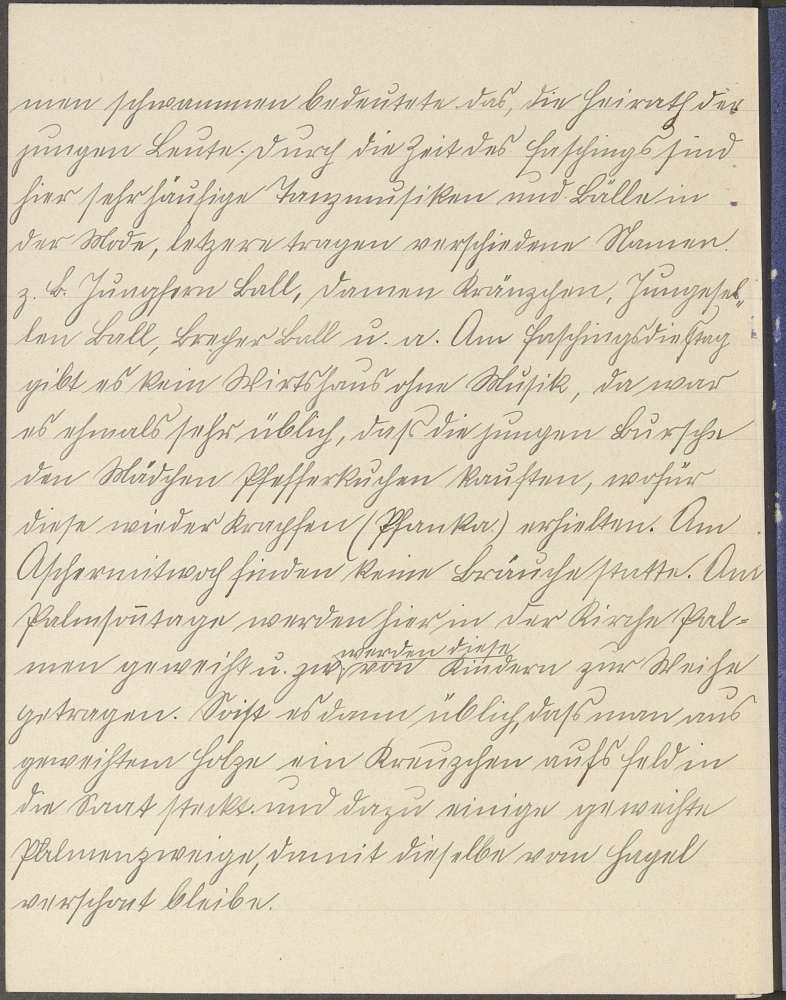 men schwammen bedeutete das, die Heirath der
jungen Leute. Durch die Zeit des Faschings sind
hier sehr häufige Tanzmusiken und Bälle in
der Mode, letzere tragen verschiedene Namen.
z. B. Jungfern Ball, Damen Kränzchen, Jungesel-
len Ball, Brecher Ball u. a. Am Faschingsdiestag
gibt es kein Wirtshaus ohne Musik, da war
es ehmals sehr üblich, daß die jungen Bursche
den Mädchen Pfefferkuchen kauften, wofür
diese wieder Krapfen (Pfanka.) erhielten. Am
Aschermitwoch finden keine Bräuche statte. Am
Palmsontage werden hier in der Kirche Pal-
men geweiht u. zw. werden diese von Kindern zur Weihe
getragen. So ist es dann üblich, daß man aus
geweihtem Holze ein Kreuzchen aufs Feld in
die Saat steckt und dazu einige geweihte
Palmenzweige, damit dieselbe vom Hagel
verschont bleibe.